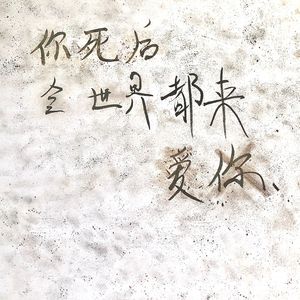 你死后
全世界都来
爱你、